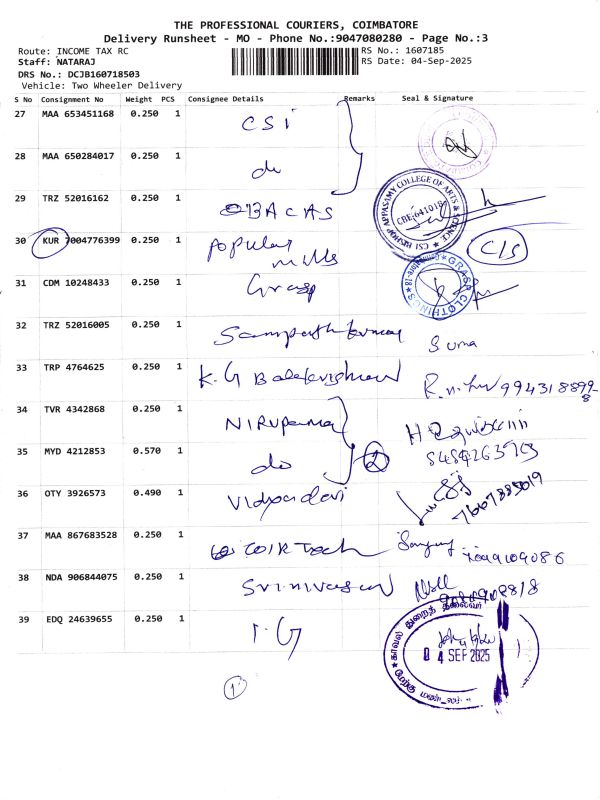 THE PROFESSIONAL COURIERS, COIMBATORE
Delivery Runsheet - MO - Phone No.:9047080280 - Page No.:3
Route: INCOME TAX RC
RS No.: 1607185
Staff: NATARAJ
RS Date: 04-Sep-2025
DRS No.: DCJB160718503
Vehicle: Two Wheeler Delivery
S No Consignment No Weight PCS Consignee Details Remarks Seal & Signature
27 MAA 653451168 0.250 1 CSI
28 MAA 650284017 0.250 1 do
29 TRZ 52016162 0.250 1 BACAS
CSI BISHOP APPASAMY COLLEGE OF ARTS & SCIENCE
CBE-641018
30 KUR 7004776399 0.250 1 Popular mills C/s
31 CDM 10248433 0.250 1 Grasp
GRASP CLOTHINGS
32 TRZ 52016005 0.250 1 Sampathkumar Suma
33 TRP 4764625 0.250 1 K.G Balakrishnan
34 TVR 4342868 0.250 1 Nirupama
35 MYD 4212853 0.570 1 do 2
36 OTY 3926573 0.490 1 Vidyadevi
37 MAA 867683528 0.250 1 COIR Tech
38 NDA 906844075 0.250 1 Srinivasan
39 EDQ 24639655 0.250 1 I.G
காவல் துறைத் தலைவர்
04 SEP 2025
1